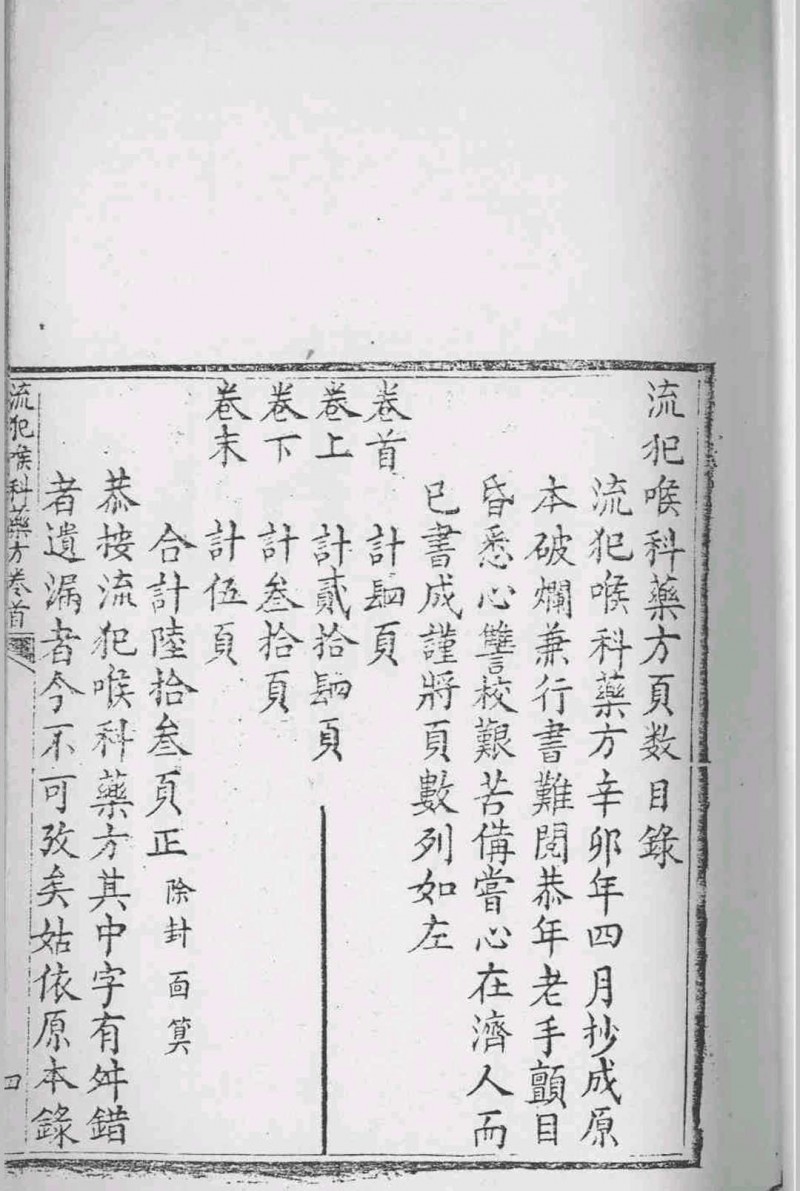 流犯喉科藥方頁数目錄
流犯喉科藥方辛卯年四月抄成原
本破爛兼行書難閱恭年老手顫目
昏悉心讐校艱苦備嘗心在濟人而
已書成謹將頁數列如左
卷首　計肆頁
卷上　計貳拾肆頁
卷下　計叁拾頁
卷末　計伍頁
合計陸拾叁頁正　除封面算
恭按流犯喉科藥方其中字有舛錯
者遺漏者今不可攷矣姑依原本錄
流犯喉科藥方卷首　四